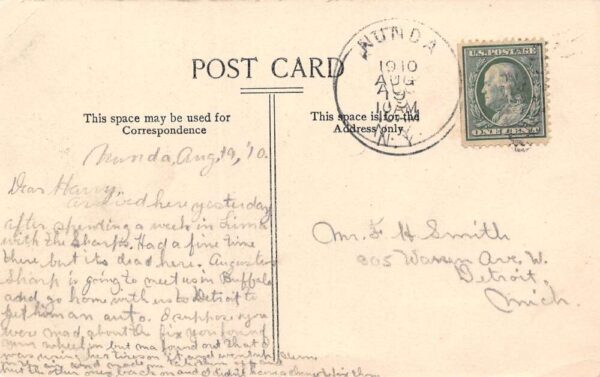 POST CARD
This space may be used for
Correspondence
This space is for the
Address only
NUNDA
1910
AUG
19
10AM
N.Y.
U.S. POSTAGE
ONE CENT
Nunda, Aug. 19, '10.
Dear Harry,
arrived here yesterday
after spending a week in Lima
with the Sharps. Had a fine time
there but its dead here. Augustus
Sharp is going to meet us in Buffalo
and go home with us to Detroit to
get him an auto. I suppose you
were mad about the fix you found
your wheel in but ma found out that I
was using her tires on it and
and made me take them off and
but the other ones back on and I didn't have a chance to fix them
Mr. F H Smith
805 Warren Ave, W.
Detroit,
Mich.